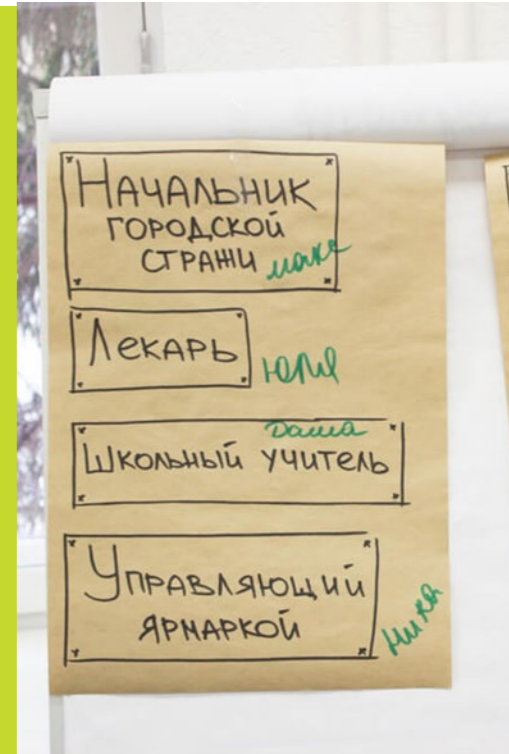 Начальник
городской
стражи макс
Лекарь юля
Даша
Школьный учитель
Управляющий
ярмаркой
Ника